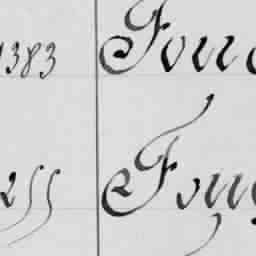 1383 Fouc
255 Foug